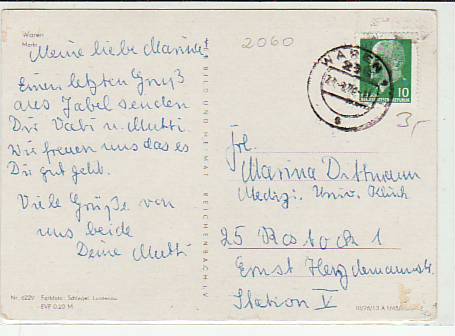 Waren
Markt
Meine liebe Marina
Einen letzten Gruß
aus Jabel senden
Dir Vati u. Mutti.
Wir freuen uns das es
Dir gut geht.
Viele Grüße von
uns beide
Deine Mutti
Nr. 6229 Farbfoto: Schlegel, Lustenau
EVP 0,20 M
BILD UND HEIMAT REICHENBACH I.V.
2060
WAREN
10
3,-
Frl.
Marina Dittmann
Mediz. Univ. Klinik
25 Rostock 1
Ernst Heydemannstr.
Station V